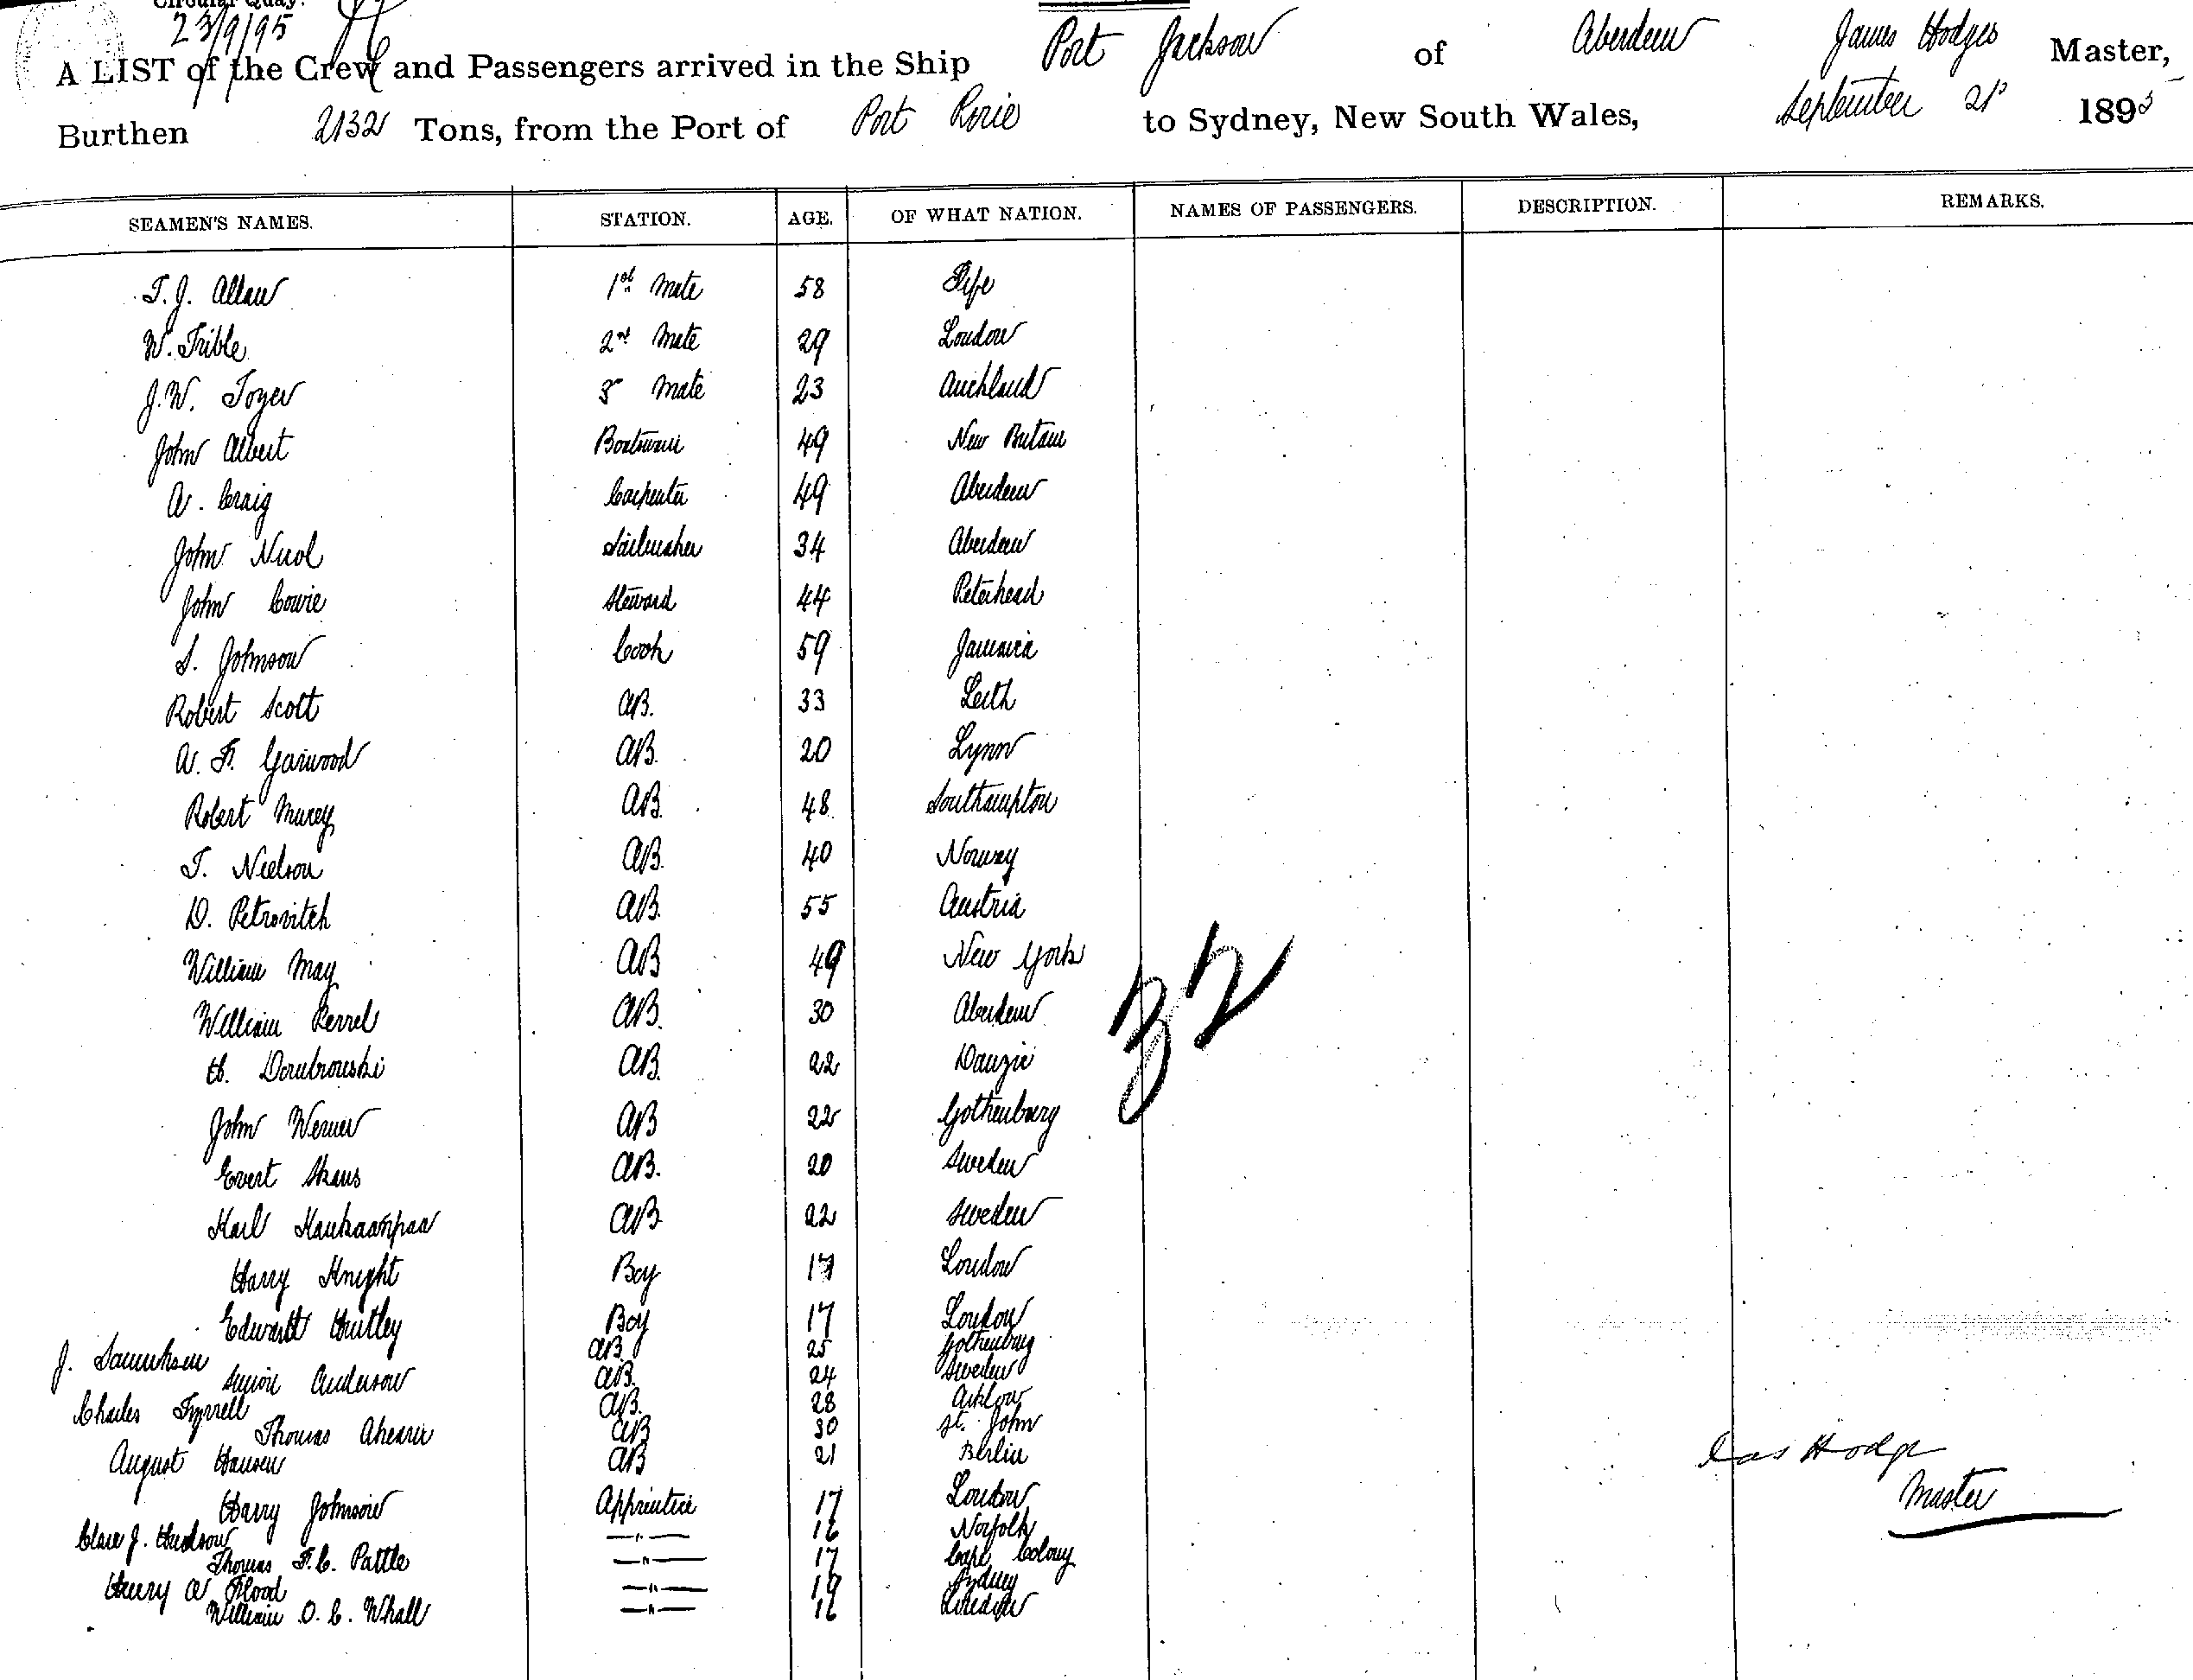 Circular Quay.
23/9/95
A LIST of the Crew and Passengers arrived in the Ship Port Jackson of Aberdeen James Hodges Master,
Burthen 2132 Tons, from the Port of Port Pirie to Sydney, New South Wales, September 21st 1895
SEAMEN'S NAMES. STATION. AGE. OF WHAT NATION. NAMES OF PASSENGERS. DESCRIPTION. REMARKS.
T. J. Allan 1st Mate 58 Fife
W. Trible 2nd Mate 29 London
J. W. Toyer 3 Mate 23 Auckland
John Albert Boatswain 49 New Britain
A. Craig Carpenter 49 Aberdeen
John Nicol Sailmaker 34 Aberdeen
John Cowie Steward 44 Peterhead
S. Johnson Cook 59 Jamaica
Robert Scott AB. 33 Leith
A. F. Garwood AB. 20 Lynn
Robert AB. 48 Southampton
T. Neilson AB. 40 Norway
D. Petrovitch AB. 55 Austria
William May AB 49 New York
William Perrel AB. 30 Aberdeen
Dombrowski AB. 22 Danzic
John Werner AB 22 Gothenburg
Evert AB. 20 Sweden
Karl AB 22 Sweden
Harry Knight Boy 17 London
Edward Huitley Boy 17 London
J. AB 25 Gothenburg
Simon Anderson AB. 24 Sweden
Charles Tyrrell AB. 28 Arklow
Thomas Ahearn AB 30 St. John
August Hansen AB 21 Berlin
Harry Johnson Apprentice 17 London
J. Hudson —"— 16 Norfolk
Thomas F. C. Pattle —"— 17 Cape Colony
Henry A Flood —"— 19 Sydney
William O. C. Whall —"— 16 London
32
Jas Hodge
Master